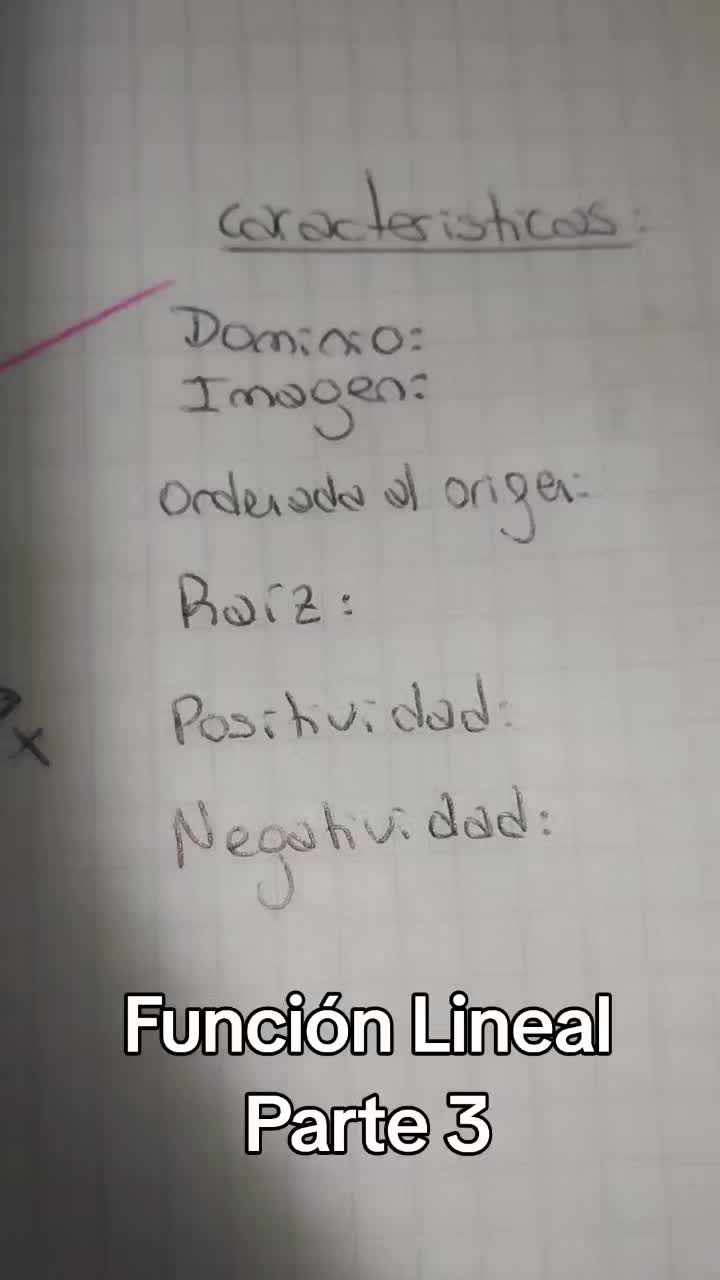 Caracteristicas:
Dominio:
Imagen:
Ordenada al origen:
Raíz:
x
Positividad:
Negatividad:
Función Lineal
Parte 3